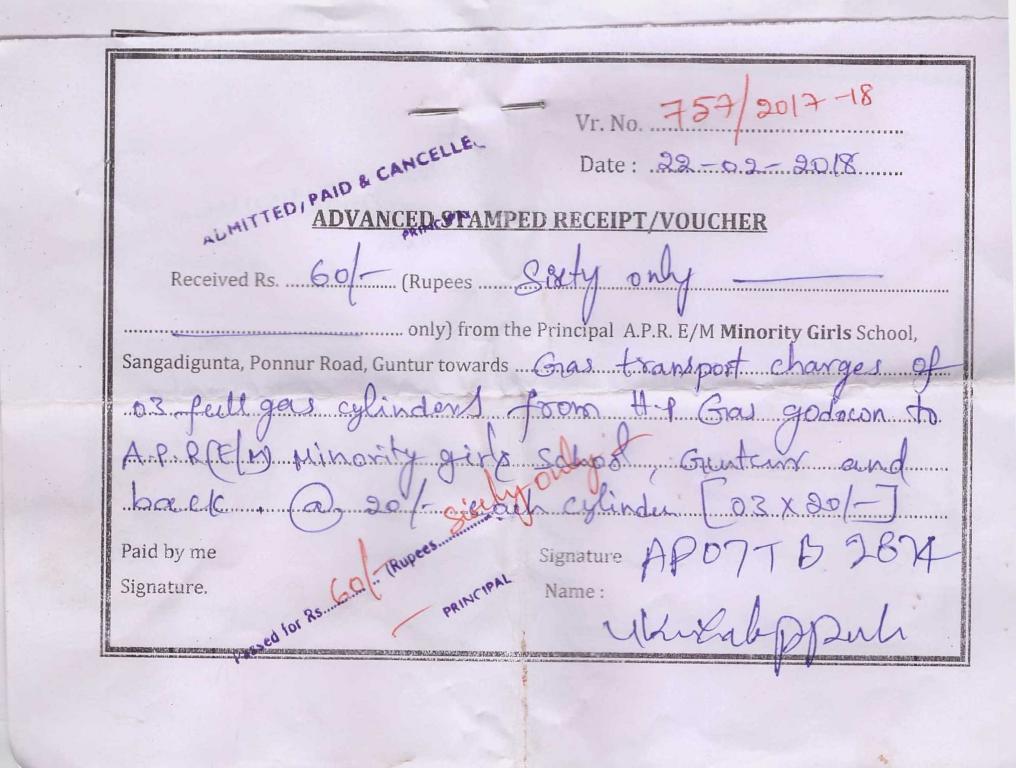 Vr. No. 757/2017-18
Date : 22-02-2018
ADMITTED, PAID & CANCELLE
PRINCIPAL
ADVANCED STAMPED RECEIPT/VOUCHER
Received Rs. 60/- (Rupees Sixty only
only) from the Principal A.P.R. E/M Minority Girls School,
Sangadigunta, Ponnur Road, Guntur towards Gas transport charges of
03 full gas cylinders from H.P Gas godown to
A.P.R(E/M) Minority girls School, Guntur and
back. @ 20/- each cylinder [03 x 20/-]
Paid by me
Signature.
Passed for Rs. 60/- (Rupees Sixty only
PRINCIPAL
Signature AP07TB 2674
Name :